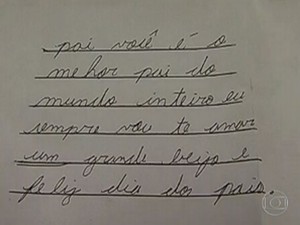 pai você é o
mehor pai do
mundo inteiro eu
sempre vou te amar
um grande beijo e
feliz dia dos pais.